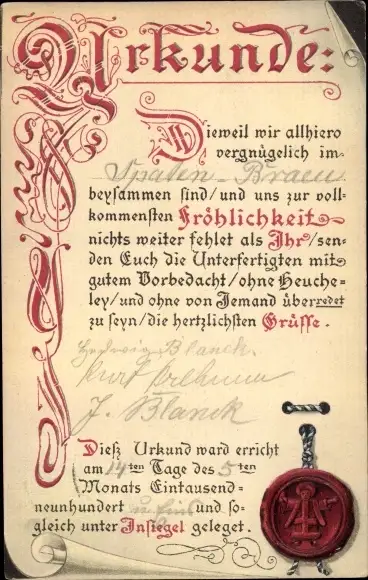 Urkunde:
Dieweil wir allhiero
vergnügelich im
Spaten-Braeu
beysammen sind/und uns zur voll-
kommensten Fröhlichkeit
nichts weiter fehlet als Ihr/sen-
den Euch die Unterfertigten mit
gutem Vorbedacht/ohne Heuche-
ley/und ohne von Jemand überredet
zu seyn/die hertzlichsten Grüsse.
Hedwig Blanck.
Kurt
J. Blanck
Diesz Urkund ward erricht
am 14ten Tage des 5ten
Monats Eintausend-
neunhundert und so-
gleich unter Insiegel geleget.